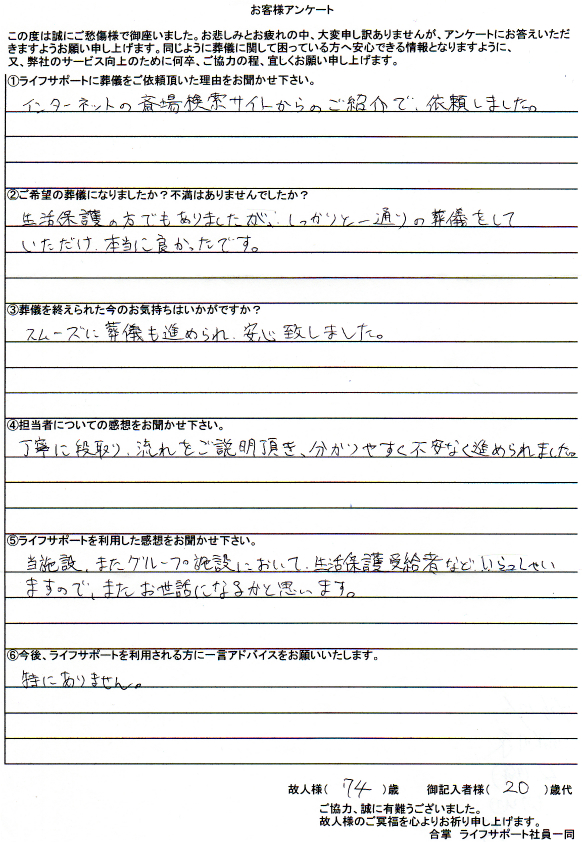 お客様アンケート
この度は誠にご愁傷様で御座いました。お悲しみとお疲れの中、大変申し訳ありませんが、アンケートにお答えいただ
きますようお願い申し上げます。同じように葬儀に関して困っている方へ安心できる情報となりますように、
又、弊社のサービス向上のために何卒、ご協力の程、宜しくお願い申し上げます。
①ライフサポートに葬儀をご依頼頂いた理由をお聞かせ下さい。
インターネットの斎場検索サイトからのご紹介で、依頼しました。
②ご希望の葬儀になりましたか？不満はありませんでしたか？
生活保護の方でもありましたが、しっかりと一通りの葬儀をして
いただけ、本当に良かったです。
③葬儀を終えられた今のお気持ちはいかがですか？
スムーズに葬儀も進められ、安心致しました。
④担当者についての感想をお聞かせ下さい。
丁寧に段取り、流れをご説明頂き、分かりやすく不安なく進められました。
⑤ライフサポートを利用した感想をお聞かせ下さい。
当施設、またグループ施設において、生活保護受給者など、いらっしゃい
ますので、またお世話になるかと思います。
⑥今後、ライフサポートを利用される方に一言アドバイスをお願いいたします。
特にありません。
故人様( 74 )歳 御記入者様( 20 )歳代
ご協力、誠に有難うございました。
故人様のご冥福を心よりお祈り申し上げます。
合掌 ライフサポート社員一同